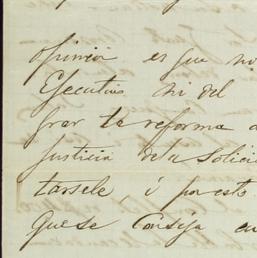 opinion es que no
Ejecutivo ni del
grar la reforma a
Justicia de la Solici
tarsele i por esto
que se Consiga en